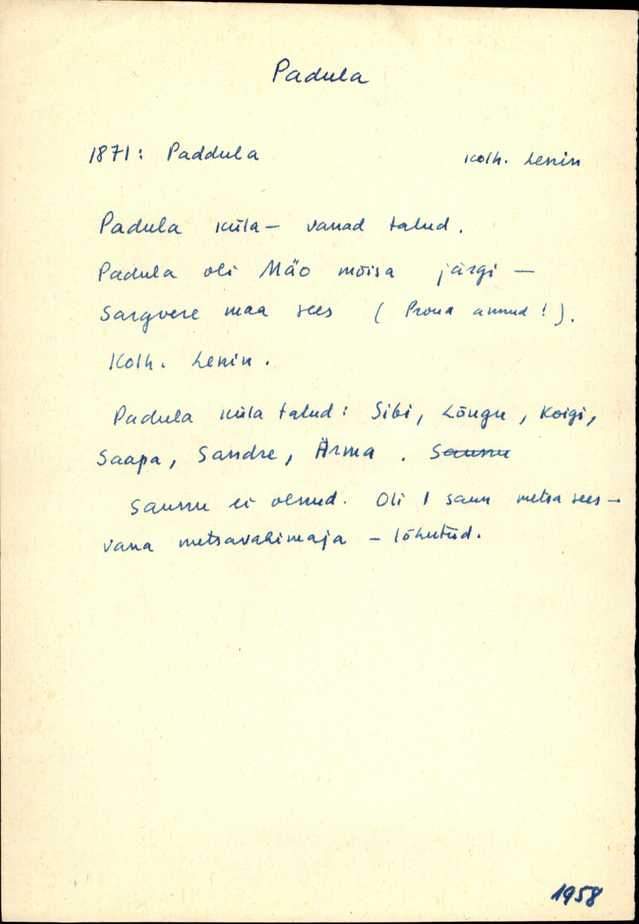 Padula
1871: Paddula Kolh. Lenin
Padula küla – vanad talud.
Padula oli Mäo mõisa järgi –
Sargvere maa sees (Proua annud!).
Kolh. Lenin.
Padula küla talud: Sibi, Lõngu, Koigi,
Saapa, Sandre, Ärma. Saunu
Saunu ei olnud. Oli 1 saun metsa sees –
vana metsavahimaja – lõhutud.
1958